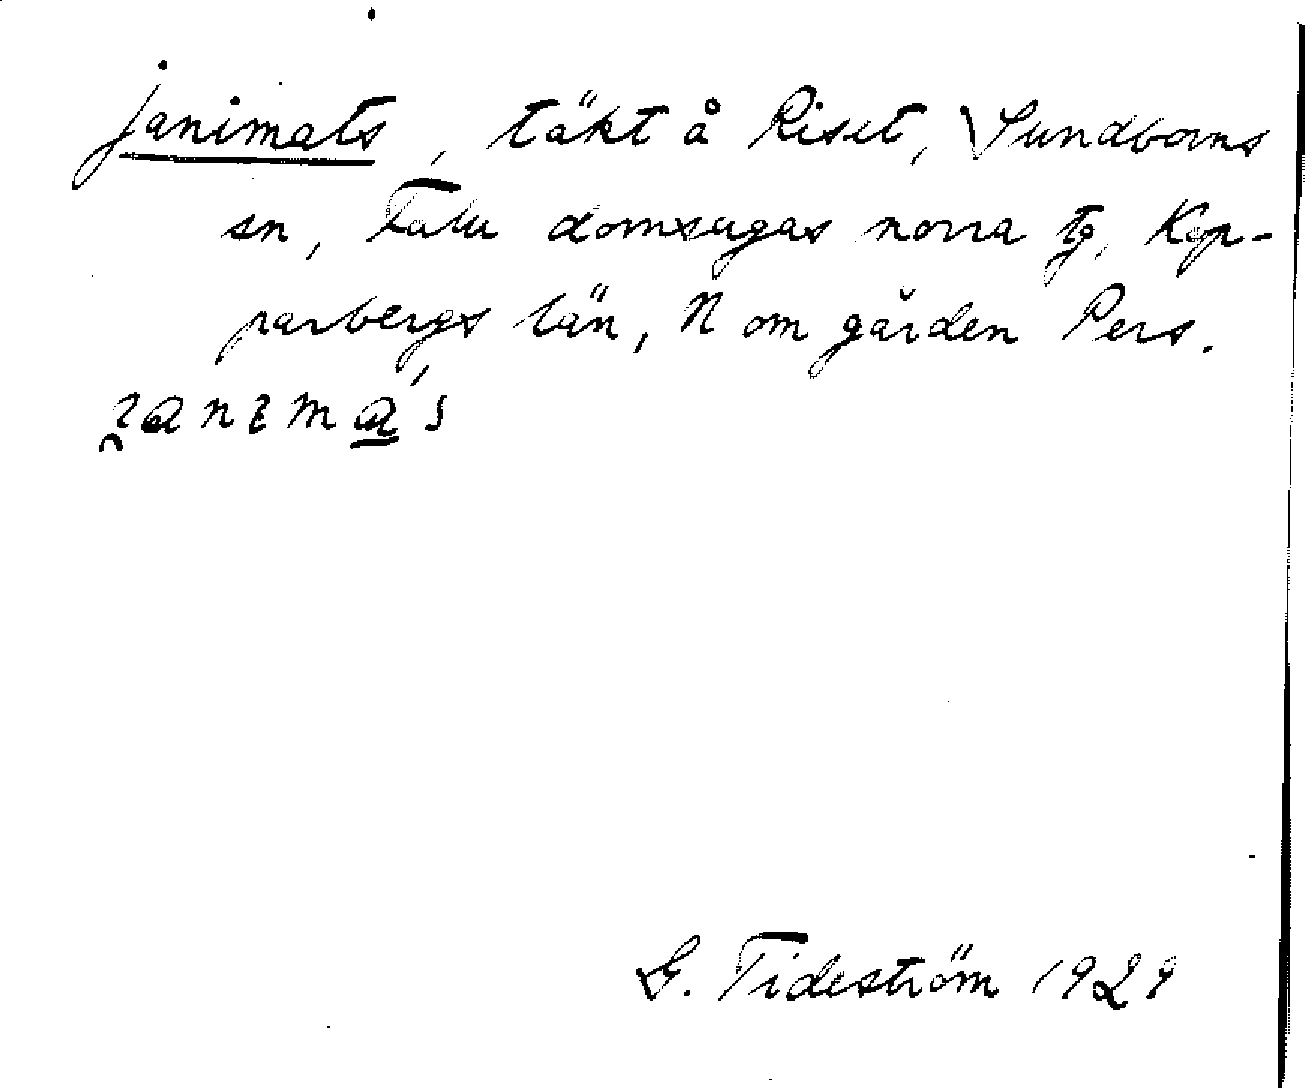 janimats, täkt å Riset, Sundborns
sn, Falu domsagas norra tg, Kop-
parbergs län, N om gården Pers.
G. Tideström 1929